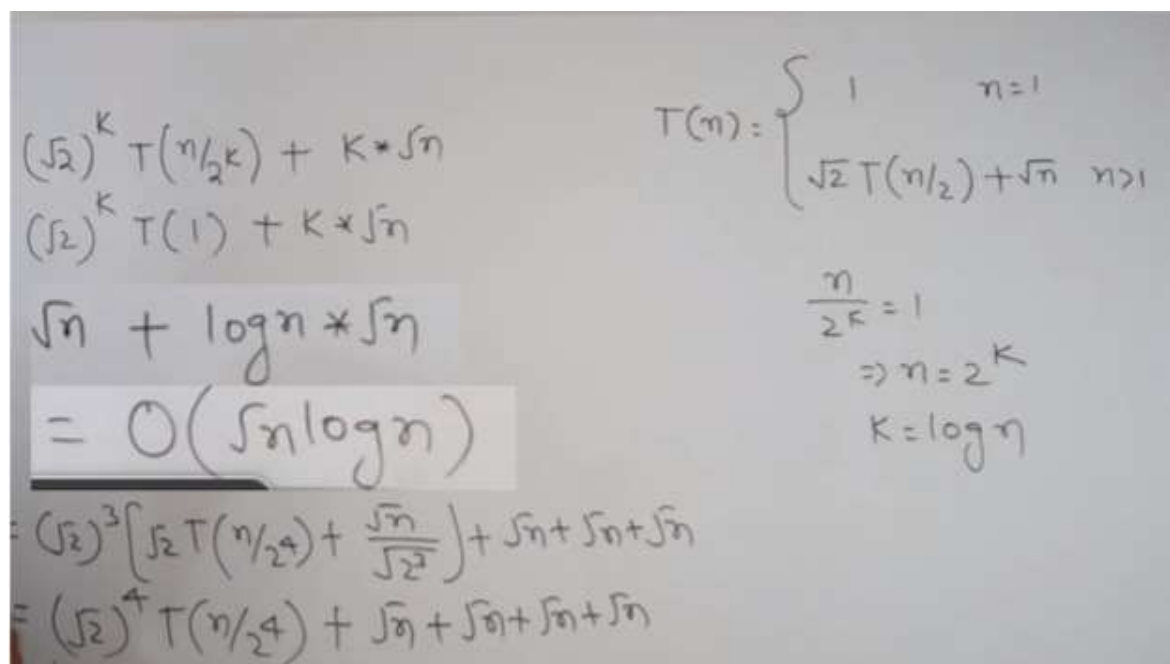 (√2)^K T(n/2^K) + K*√n
(√2)^K T(1) + K*√n
√n + logn*√n
= O(√nlogn)
= (√2)^3[√2 T(n/2^4) + √n/√2^3] + √n+√n+√n
= (√2)^4 T(n/2^4) + √n+√n+√n+√n
T(n) = { 1 n=1
√2 T(n/2)+√n n>1
n/2^K = 1
=> n = 2^K
K = log n